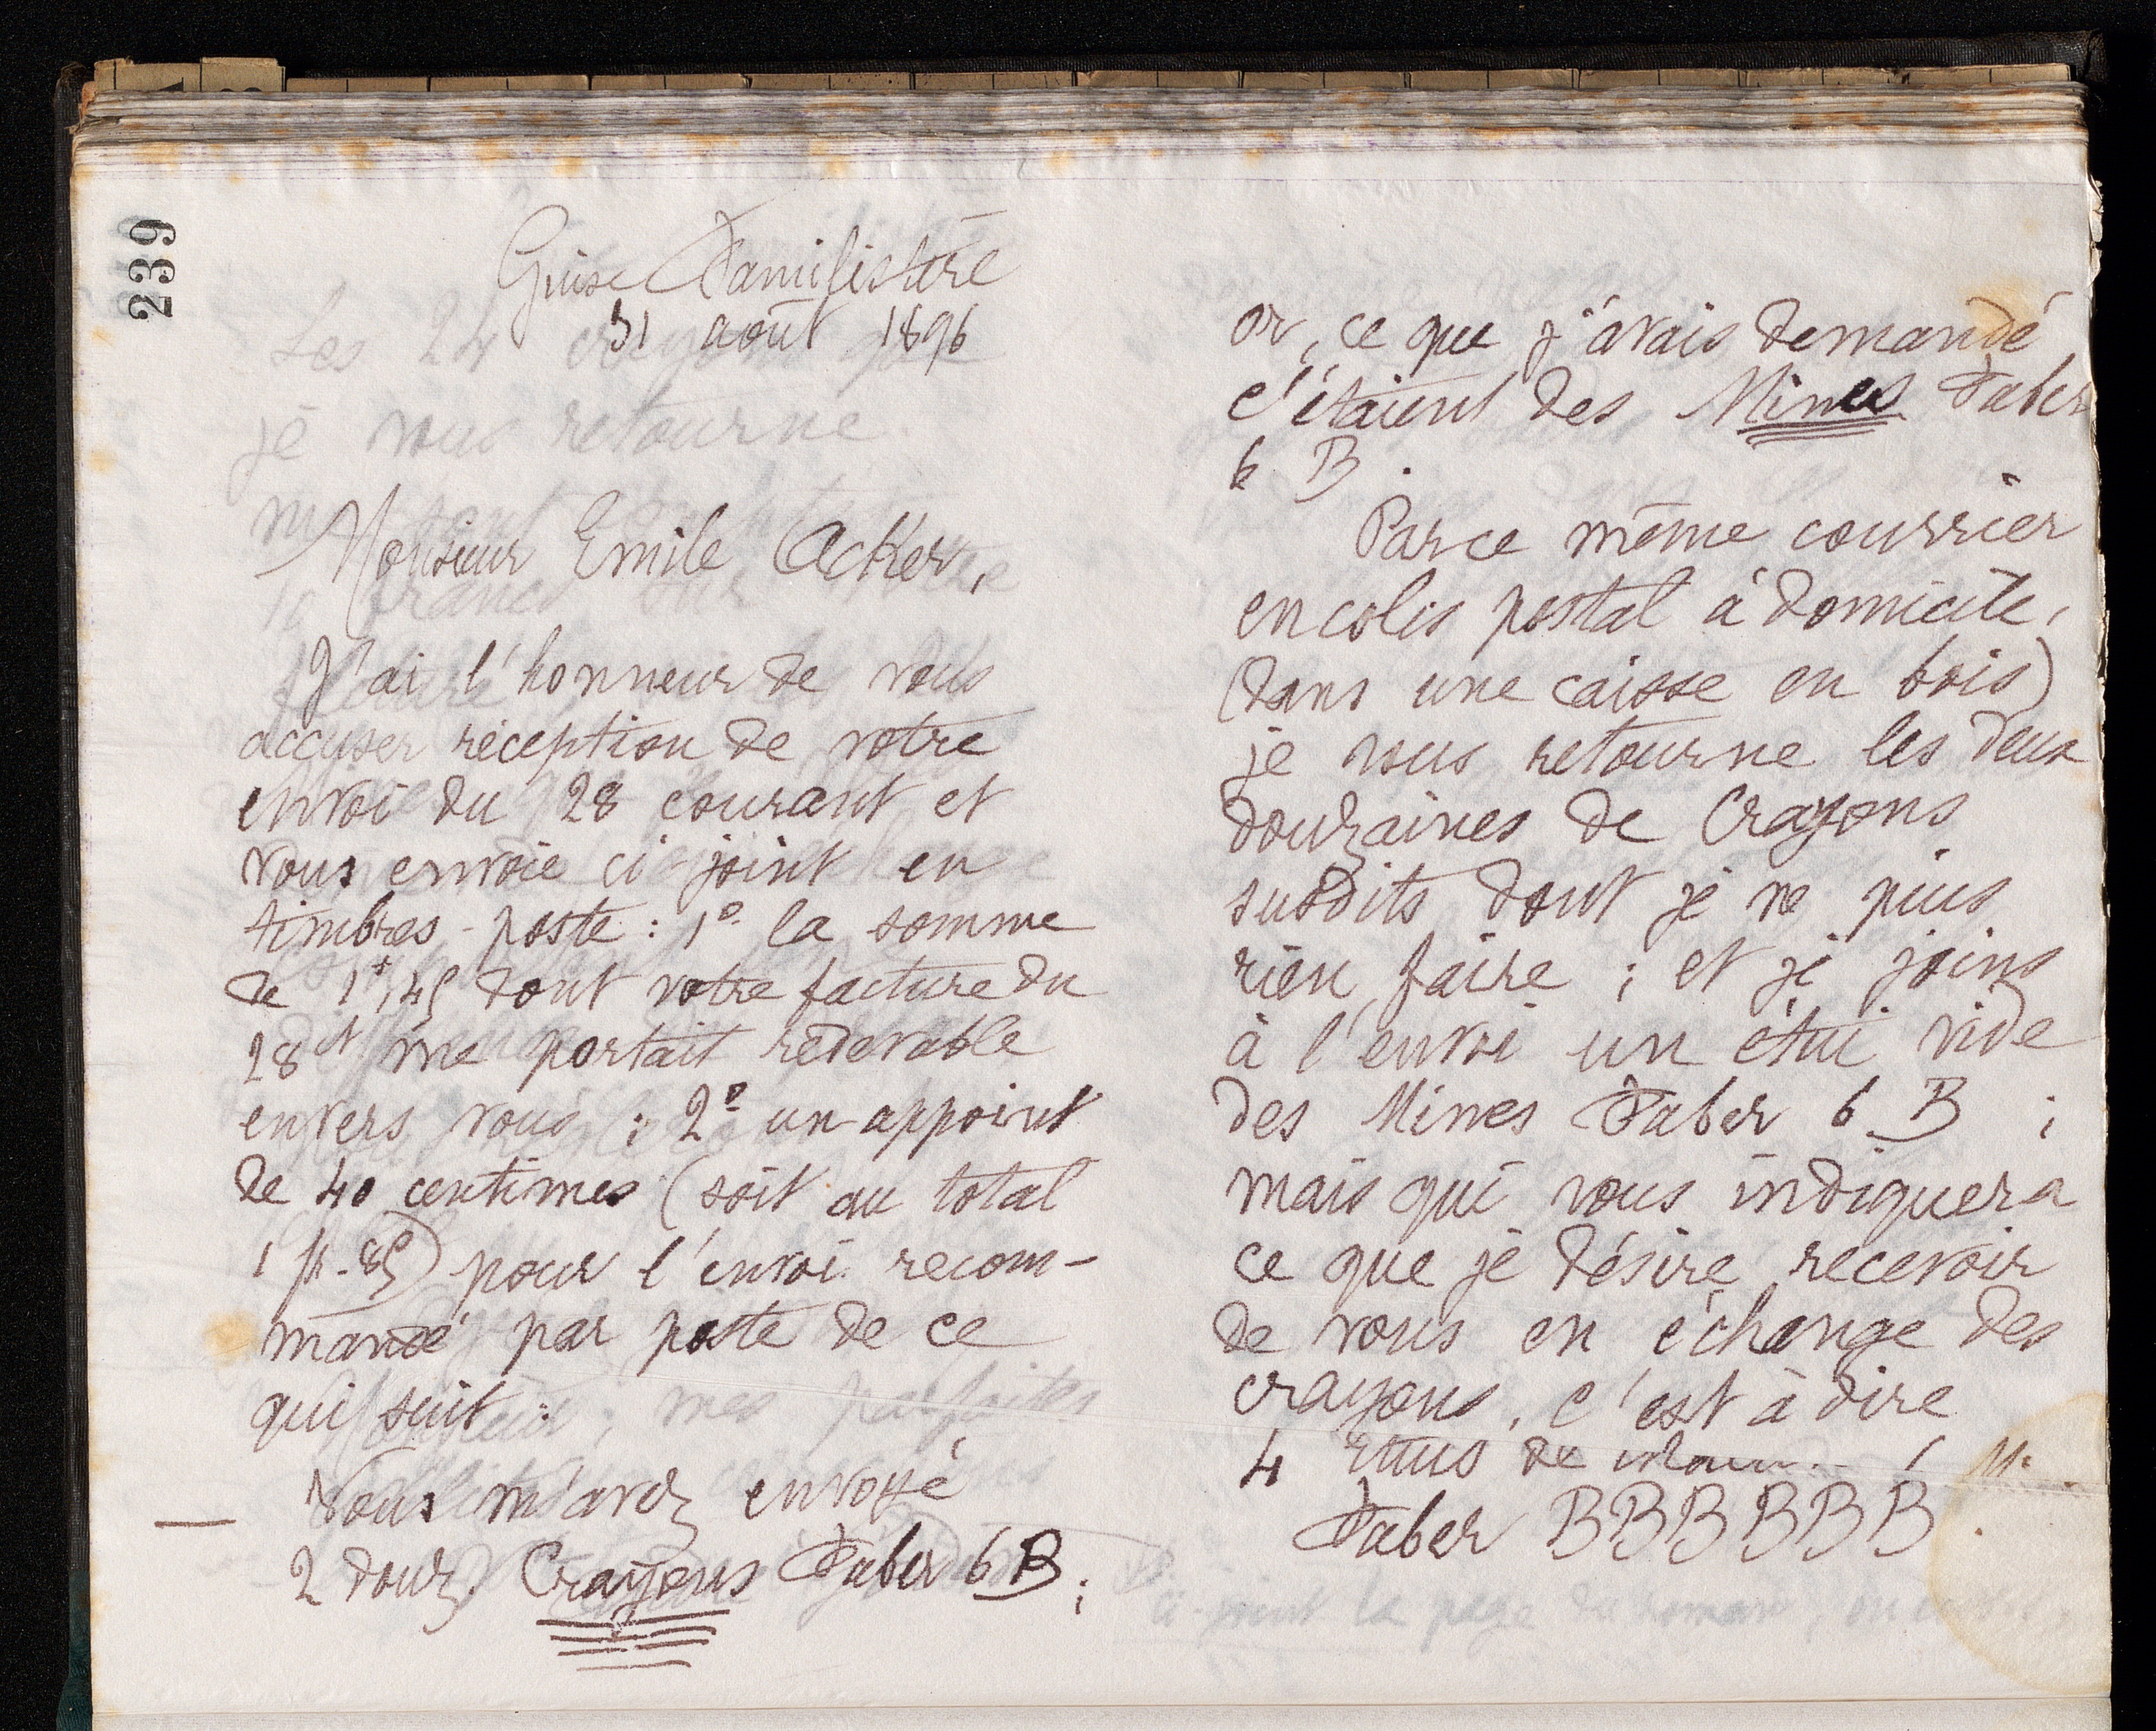 239
Guise Familistère
31 août 1896
Monsieur Emile Acker,
J'ai l'honneur de vous
accuser réception de votre
envoi du 28 courant et
vous envoie ci-joint en
timbres-poste : 1º la somme
de 1f,45 dont votre facture du
28 ct me portait redevable
envers vous ; 2º un appoint
de 40 centimes (soit au total
1 fr. 85) pour l'envoi recom-
mandé par poste de ce
qui suit :
Vous m'avez envoyé
2 douz. Crayons Faber 6 B ;
or, ce que j'avais demandé
c'étaient des Mines Faber
6 B.
Par ce même courrier
en colis postal à domicile,
(dans une caisse en bois)
je vous retourne les deux
douzaines de Crayons
susdits dont je ne puis
rien faire ; et je joins
à l'envoi un étui vide
des Mines Faber 6 B ;
mais qui vous indiquera
ce que je désire recevoir
de vous en échange des
crayons, c'est à dire
4 étuis de
Faber BBBBBB